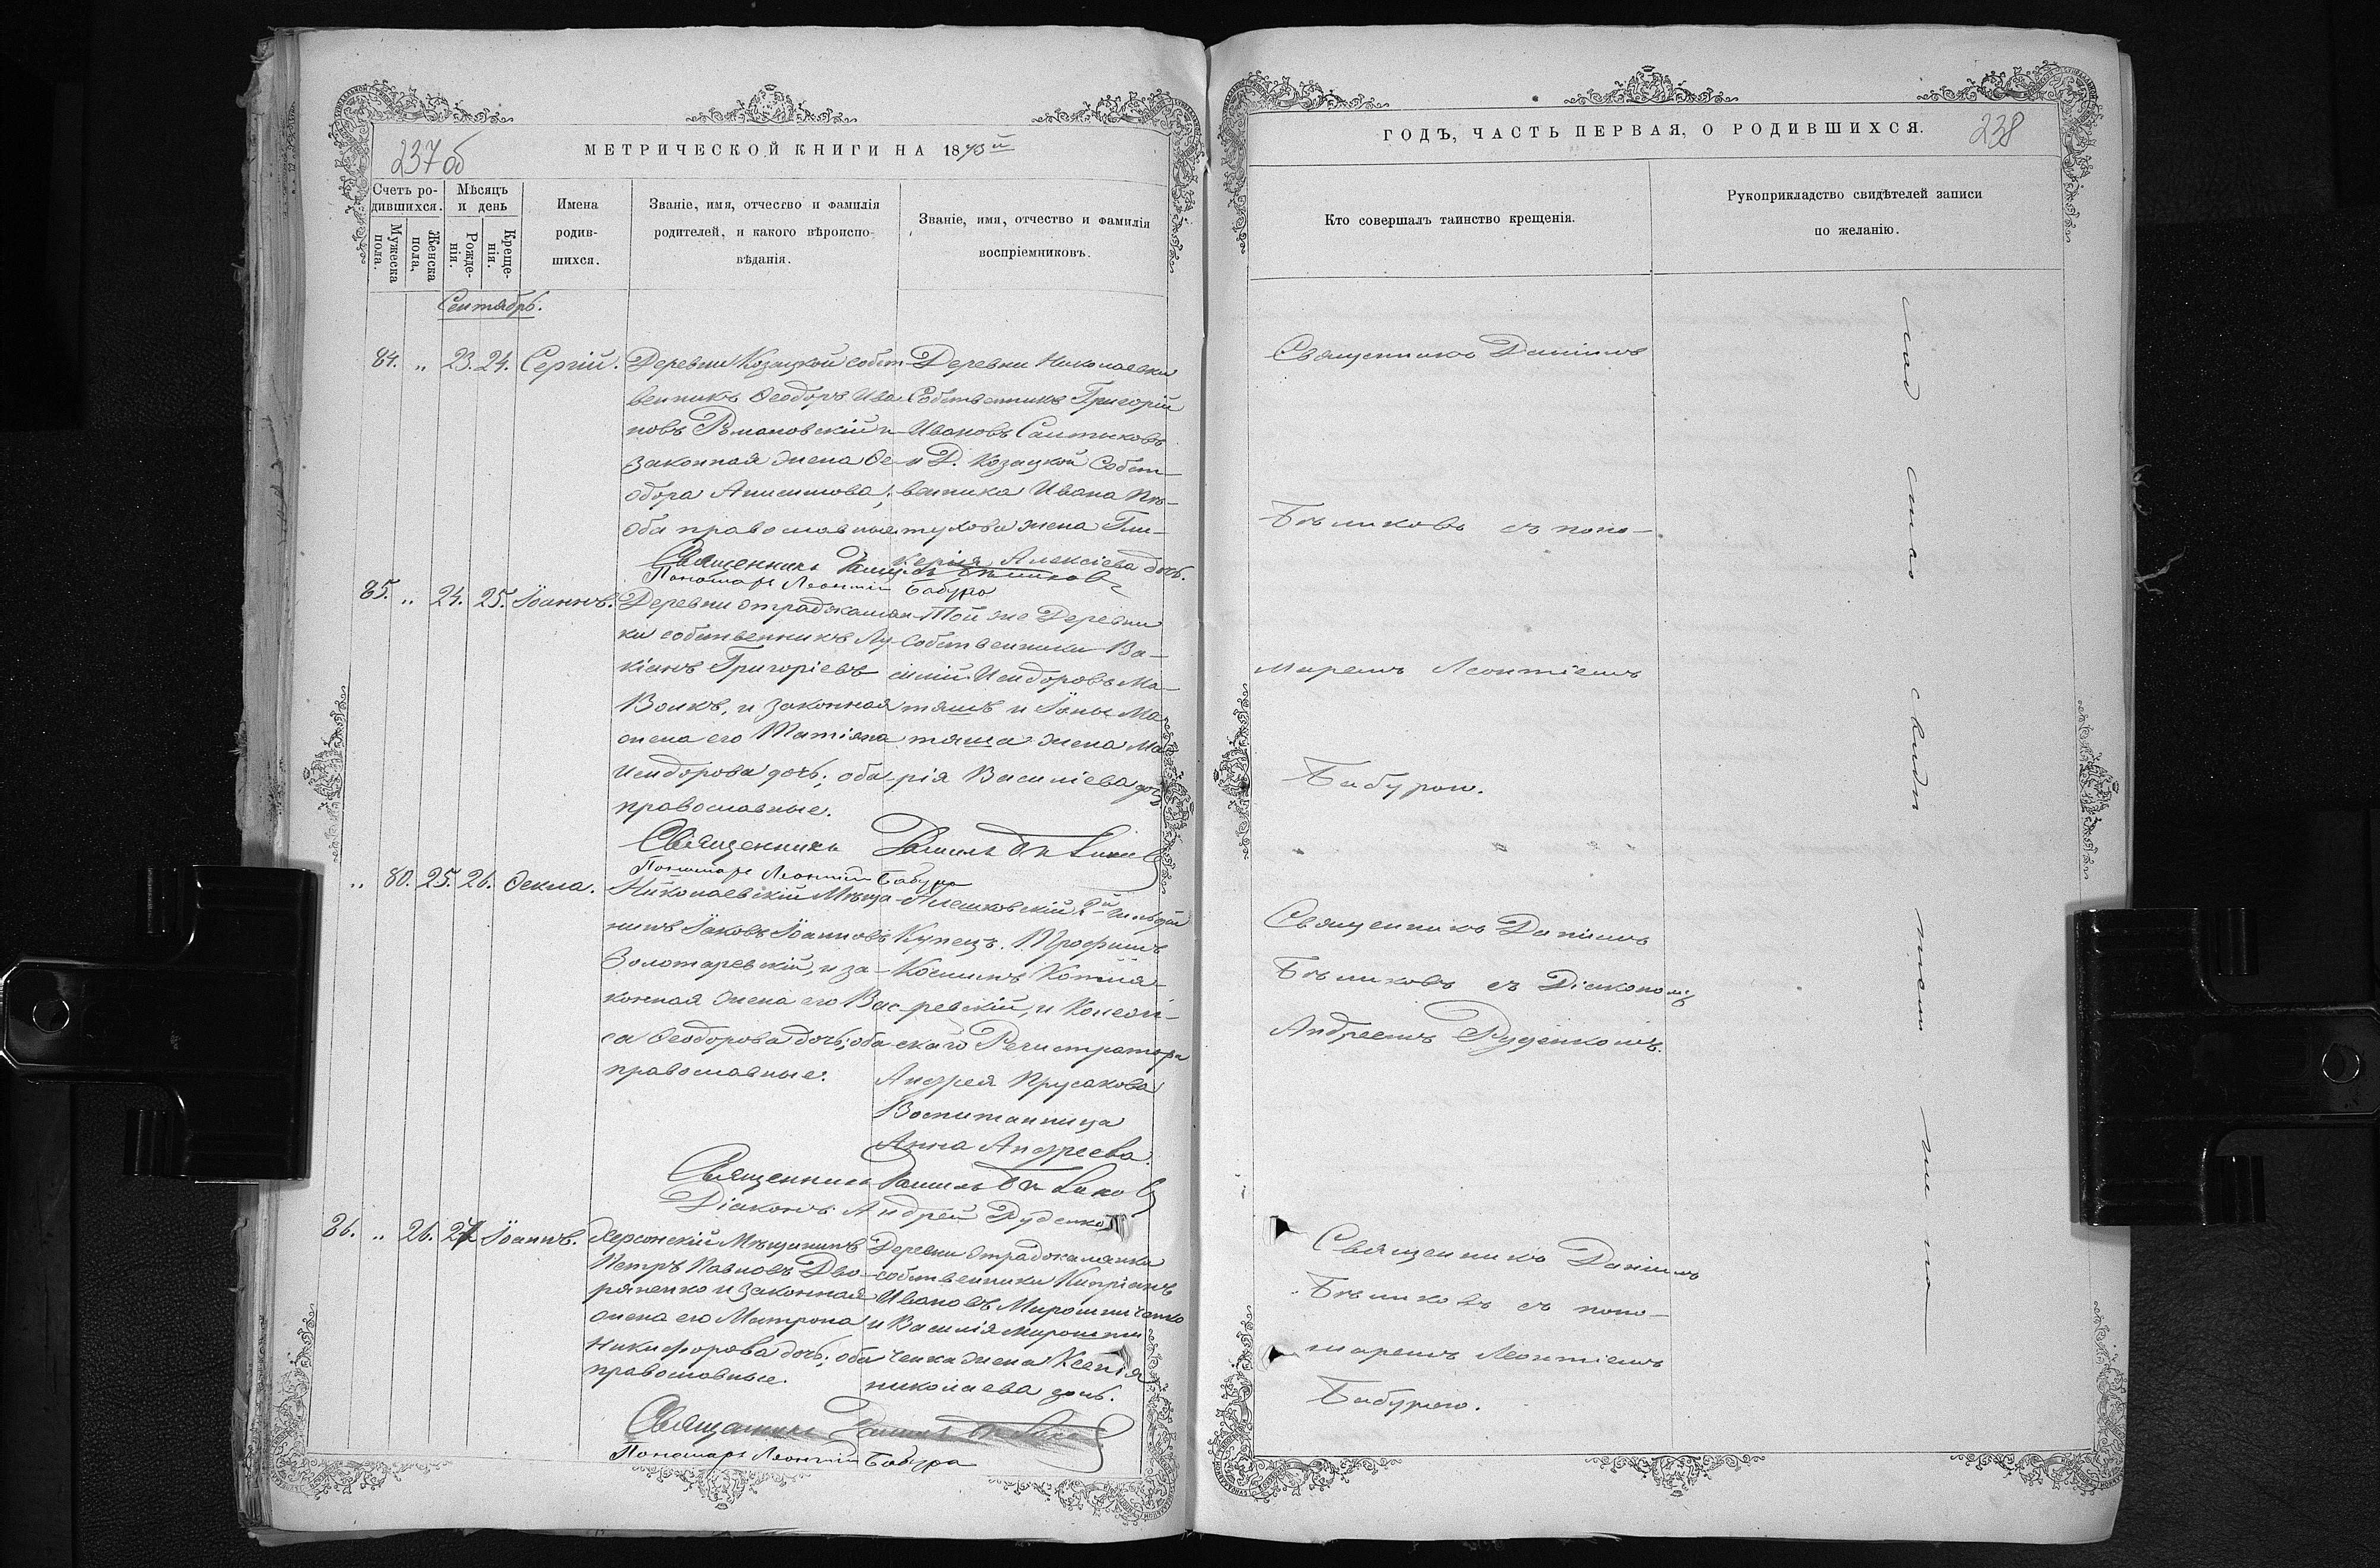 237 об
МЕТРИЧЕСКОЙ КНИГИ НА 1873й
Счетъ ро-
дившихся.
Мужеска
пола.
Женска
пола.
Мѣсяцъ
и день
Рожде-
нія.
Креще-
нія.
Имена
родив-
шихся.
Званіе, имя, отчество и фамилія
родителей, и какого вѣроиспо-
вѣданія.
Званіе, имя, отчество и фамилія
воспріемниковъ.
Сентябрь.
84. „ 23. 24. Сергій.
Деревни Козацкой собст-
венникъ Ѳеодоръ Ива-
новъ и
законная жена Ѳе-
одора Анисимова;
оба православные
Деревни Николаевки
Собственникъ Григорій
Ивановъ Салтыковъ
и Д. Козацкой Собст-
венника Ивана Пѣ-
тухова жена Гли-
керія Алексіева дочь.
Священникъ Даніилъ Бѣликовъ
Пономарь Леонтій Бабура
85. „ 24. 25. Іоаннъ.
Деревни Отрадокамян-
ки собственникъ Лу-
кіанъ Григоріевъ
Волкъ, и законная
жена его Татіяна
Исидорова дочь; оба
православные.
Той же Деревни
Собственники Ва-
силій Исидоровъ Ма-
тяшъ и Іоны Ма-
тяша жена Ма-
рія Василіева дочь.
Священникъ Даніилъ Бѣликовъ
Пономарь Леонтій Бабура
„ 80. 25. 26. Ѳекла.
Николаевскій Мѣща-
нинъ Іаковъ Іоанновъ
Золотаревскій, и за-
конная жена его Вас-
са Ѳеодорова дочь; оба
православные.
Алешковскій 2й гильдіи
Купецъ Трофимъ
Косминъ Котля-
ревскій, и Коллеж-
скаго Регистратора
Андрея Прусакова
Воспитанница
Анна Андреева.
Священникъ Даніилъ Бѣликовъ
Діаконъ Андрей Руденко
86. „ 26. 27. Іоаннъ.
Херсонскій Мѣщанинъ
Петръ Павловъ Дво-
ряненко и законная
жена его Матрона
Никифорова дочь; оба
православные.
Деревни Отрадокамянки
собственники Кипріанъ
Ивановъ Мирошниченко
и Василія Мирошни
ченка жена Ксенія
Николаева дочь.
Священникъ Даніилъ Бѣликовъ
Пономарь Леонтій Бабура
ГОДЪ, ЧАСТЬ ПЕРВАЯ, О РОДИВШИХСЯ.
238
Кто совершалъ таинство крещенія.
Рукоприкладство свидѣтелей записи
по желанію.
Священникъ Даніилъ
Бѣликовъ съ поно-
маремъ Леонтіемъ
Бабурою.
Священникъ Даніилъ
Бѣликовъ съ Діакономъ
Андреемъ Руденкомъ.
Священникъ Даніилъ
Бѣликовъ съ поно-
маремъ Леонтіемъ
Бабурою.